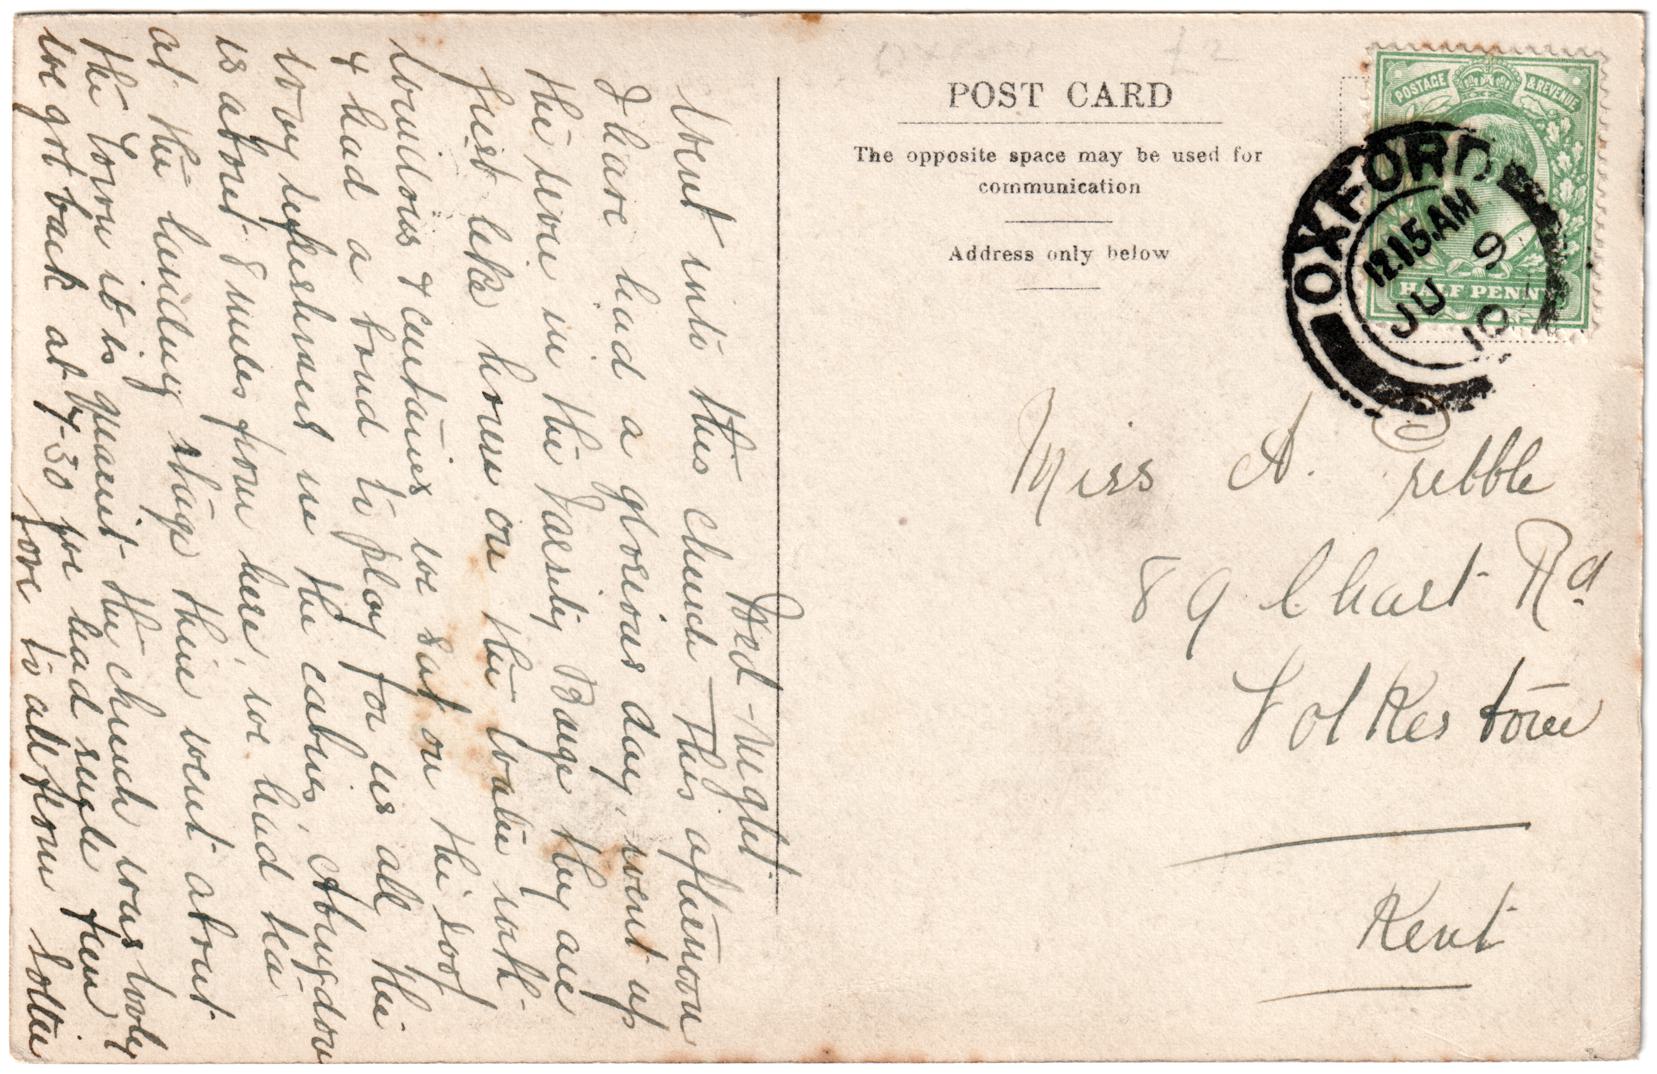 POST CARD
The opposite space may be used for
communication
Address only below
£2
POSTAGE & REVENUE
HALF PENNY
OXFORD
12.15.AM
JU 9
10
Miss A. Pebble
89 Chart Rd
Folkestone
Kent
Wed-night
Went into this church This afternoon
I have had a glorious day, went up
the river in the Varsity Barge they are
just like houses on the water with
windows & curtains we sat on the roof
& had a band to play for us all the
way refreshment in the cabins, Abingdon
is about 8 miles from here, we had tea
at the landing stage then went about
the town it is quaint the church was lovely
we got back at 7-30 we had supper then
love to all from Lottie